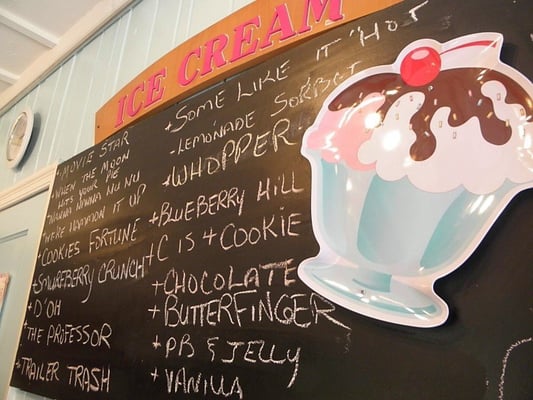 ICE CREAM
*MOVIE STAR
*WHEN THE MOON
HITS YOUR PIE
*NUNNA NUNNA NU NU
*WE'RE HAMMON IT UP
*COOKIES FORTUNE
*SMURFBERRY CRUNCH
*D'OH
*THE PROFESSOR
*TRAILER TRASH
*SOME LIKE IT HOT
-LEMONADE SORBET
*WHOPPER
*BLUEBERRY HILL
+C IS 4 COOKIE
*CHOCOLATE
*BUTTERFINGER
*PB & JELLY
*VANILLA